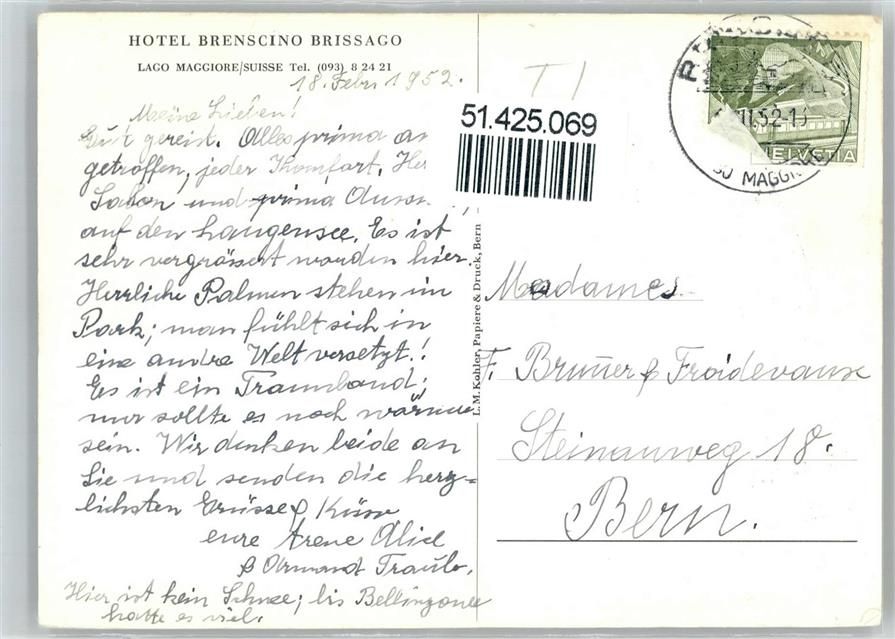 HOTEL BRENSCINO BRISSAGO
LAGO MAGGIORE/SUISSE Tel. (093) 8 24 21
18. Febr. 1952.
Meine Lieben!
Gut gereist. Alles prima an
getroffen, jeder Khomfort. Her
Salon und prima Auss
auf den Langensee. Es ist
sehr vergrössert worden hier.
Herrliche Palmen stehen im
Park; man fühlt sich in
eine andre Welt versetzt!!
Es ist ein Traumland;
nur sollte es noch wärmer
sein. Wir denken beide an
Sie und senden die herz=
lichsten Grüsse & Küsse
eure Alice
& Armand Traulb.
Hier ist kein Schnee; bis Bellinzona
hatte es viel.
L.M. Kohler, Papiere & Druck, Bern
T 1
51.425.069
II.52-1
HELVETIA
MAGGI
Madames
F. Brunner & Froidevaux
Steinauweg 18.
Bern.